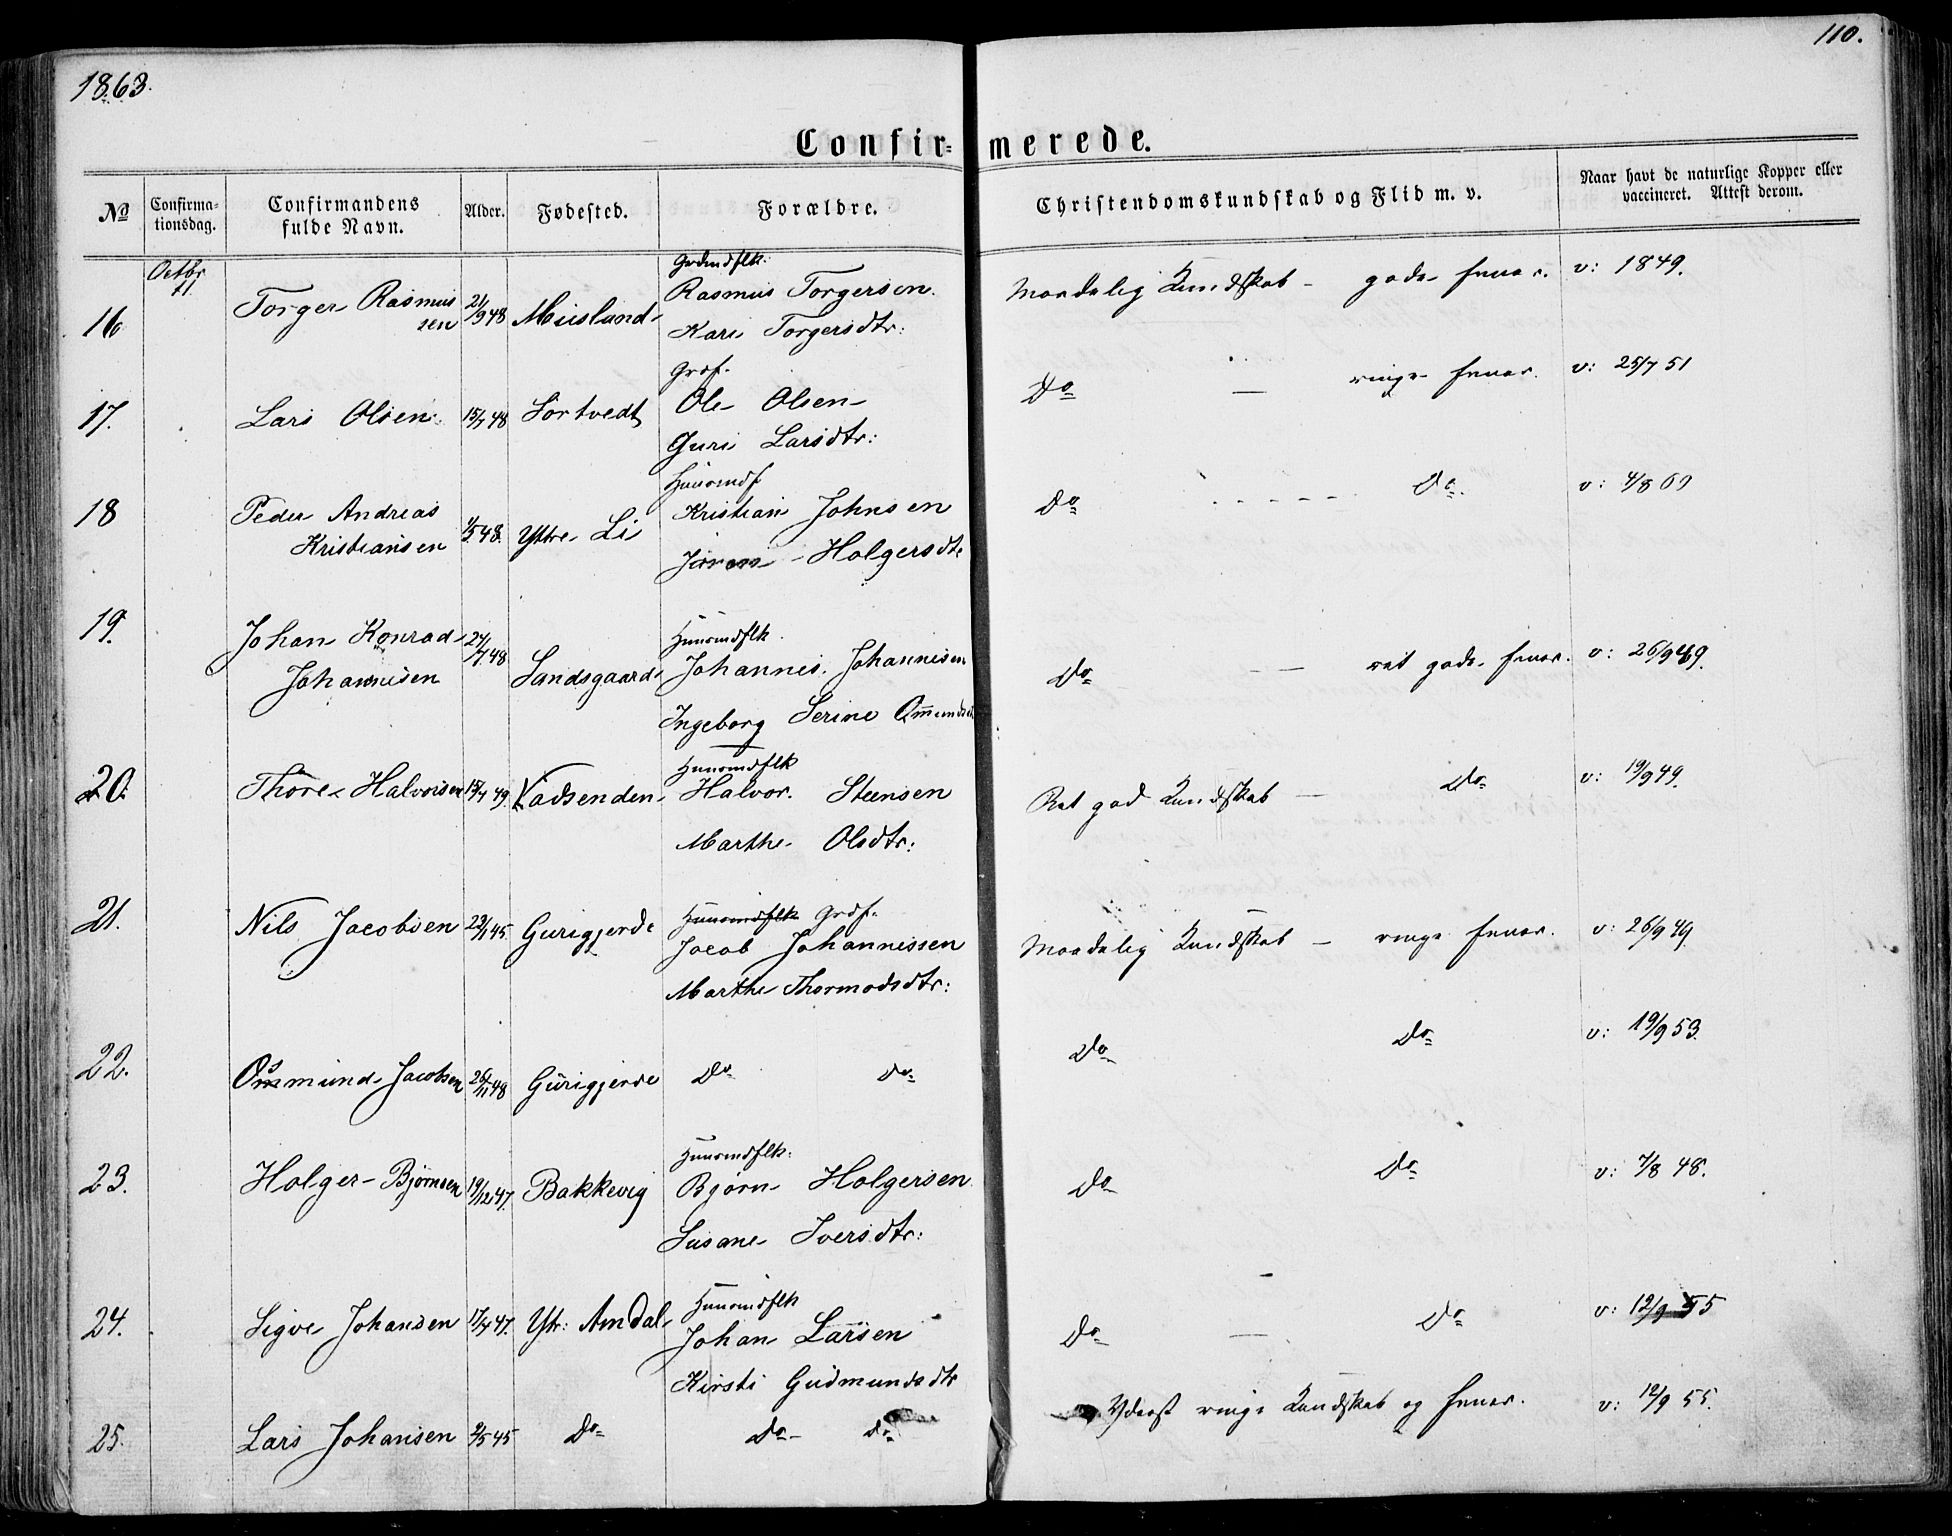 1863.
110.
Confir= merede.
No
Confirma-
tionsdag.
Confirmandens
fulde Navn.
Alder.
Fødested.
Forældre.
Christendomskundskab og Flid m. v.
Naar havt de naturlige Kopper eller
vaccineret. Attest derom.
Octbr
11.
16 Torger Rasmus
sen 21/9 48 Miisland
Grdmdflk:
Rasmus Torgersen.
Kari Torgersdtr:
Maadelig Kundskab - gode Evner. v: 1849.
17. Lars Olsen 15/7 48 Sortvedt
Grdf.
Ole Olsen
Guri Larsdtr:
Do — ringe Evner. v: 25/7 51
18 Peder Andreas
Kristiansen 1/5 48. Yttre Li
Huusmdf
Kristian Johnsen
Holgersdtr
Do - - - - - Do. v: 4/8 60
19. Johan Konrad
Johannisen 24/7 48 Sandsgaard
Huusmdflk
Johannis. Johannisen
Ingeborg Serine Omundsdtr
Do — ret gode Evner. v: 26/9 49.
20. Thore Halvorsen 15/4 49. Vadsenden
Huusmdflk
Halvor. Steensen
Marthe Olsdtr:
Ret god Kundskab — Do v: 19/9 49.
21. Nils Jacobsen 23/1 45. Gurigjerde
Huusmdflk Grdf.
Jacob Johannissen
Marthe Thormodsdtr:
Maadelig Kundskab — ringe Evner. v: 26/9 49.
22. Osmund Jacobsen 26/11 48 Gurigjerde Do Do
Do Do v: 19/9 53.
23. Holger Bjørnsen 19/12 47. Bakkevig
Huusmdflk:
Bjørn Holgersen
Susane Iversdtr:
Do Do v: 7/8 48.
24. Sigve Johansen 17/7 47. Ytr: Amdal
Huusmdflk
Johan Larsen
Kirsti Gudmundsdtr
Do — Do v: 12/9 55
25. Lars Johansen 2/5 45 Do Do Do
Yderst ringe Kundskab og Evner. v: 12/9 55.